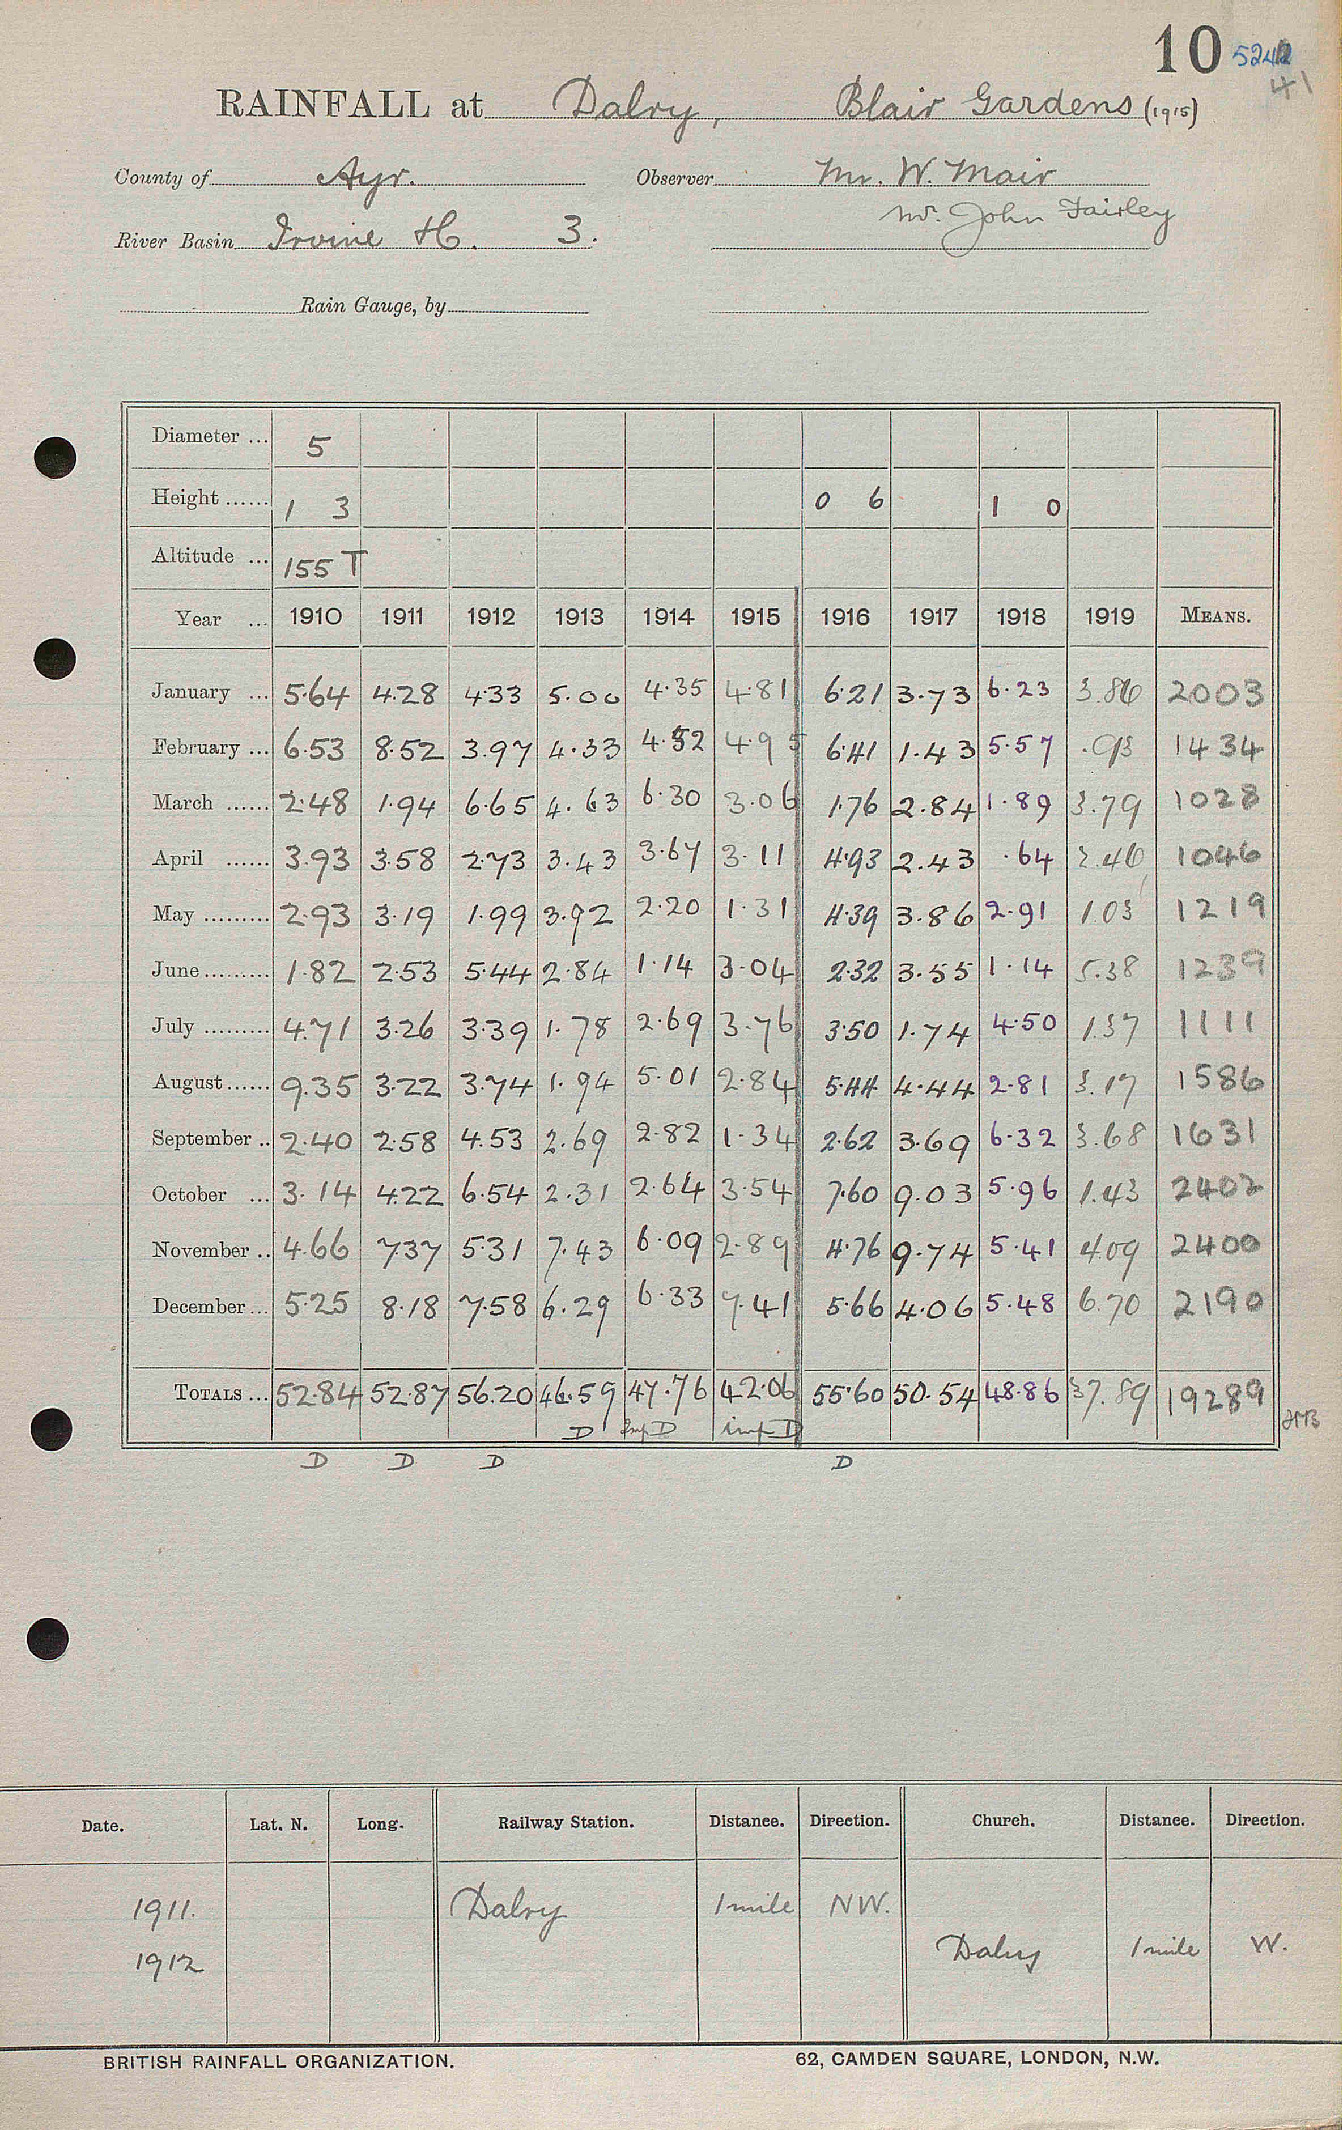 10 5241
41
RAINFALL at Dalry, Blair Gardens (1915)
County of Ayr. Observer Mr. W. Mair
Mr. John Fairley
River Basin Irvine H. 3.
Rain Gauge, by
Diameter ... 5
Height ...... 1 3 0 6 1 0
Altitude ... 155 T
Year ... 1910 1911 1912 1913 1914 1915 1916 1917 1918 1919 MEANS.
January ... 5.64 4.28 4.33 5.00 4.35 4.81 6.21 3.73 6.23 3.86 2003
February ... 6.53 8.52 3.97 4.33 4.52 4.95 6.41 1.43 5.57 .93 1434
March ...... 2.48 1.94 6.65 4.63 6.30 3.06 1.76 2.84 1.89 3.79 1028
April ...... 3.93 3.58 2.73 3.43 3.67 3.11 4.93 2.43 .64 2.46 1046
May ......... 2.93 3.19 1.99 3.92 2.20 1.31 4.39 3.86 2.91 1.03 1219
June ......... 1.82 2.53 5.44 2.84 1.14 3.04 2.32 3.55 1.14 5.38 1239
July ......... 4.71 3.26 3.39 1.78 2.69 3.76 3.50 1.74 4.50 1.37 1111
August ...... 9.35 3.22 3.74 1.94 5.01 2.84 5.44 4.44 2.81 3.17 1586
September .. 2.40 2.58 4.53 2.69 2.82 1.34 2.62 3.69 6.32 3.68 1631
October ... 3.14 4.22 6.54 2.31 2.64 3.54 7.60 9.03 5.96 1.43 2402
November .. 4.66 7.37 5.31 7.43 6.09 2.89 4.76 9.74 5.41 4.09 2400
December ... 5.25 8.18 7.58 6.29 6.33 7.41 5.66 4.06 5.48 6.70 2190
TOTALS ... 52.84 52.87 56.20 46.59 47.76 42.06 55.60 50.54 48.86 37.89 19289
D Imp D imp D JMB
D D D D
Date. Lat. N. Long. Railway Station. Distance. Direction. Church. Distance. Direction.
1911. Dalry 1 mile NW.
1912 Dalry 1 mile W.
BRITISH RAINFALL ORGANIZATION. 62, CAMDEN SQUARE, LONDON, N.W.